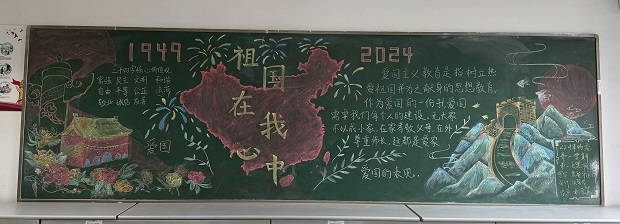 1949
祖国在我心中
2024
二十四字核心价值观
富强 民主 文明 和谐
自由 平等 公正 法治
敬业 诚信 友善
爱国
爱国主义教育是指树立热
爱祖国并为之献身的思想教育,
作为爱国的一份我爱国
需要我们每个人的建设,无大家
不以成小家,在家孝敬父母,在外
尊重师长,这都是爱家
爱国的表现。